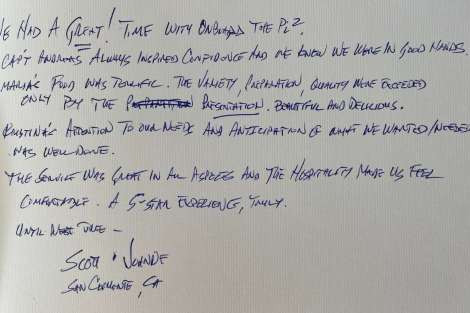 WE HAD A GREAT! TIME WITH ONBOARD THE
CAPT ANDREAS ALWAYS INSPIRED CONFIDENCE AND WE KNEW WE WERE IN GOOD HANDS.
MARIA'S FOOD WAS TERRIFIC. THE VARIETY, PREPARATION, QUALITY WERE EXCEEDED
ONLY BY THE PRESENTATION. BEAUTIFUL AND DELICIOUS.
ATTENTION TO OUR NEEDS AND ANTICIPATION OF WHAT WE WANTED/NEEDED
WAS WELL DONE.
THE SERVICE WAS GREAT IN ALL ASPECTS AND THE HOSPITALITY MADE US FEEL
COMFORTABLE. A 5-STAR EXPERIENCE, TRULY.
UNTIL NEXT TIME -
SCOTT
SAN CLEMENTE, CA